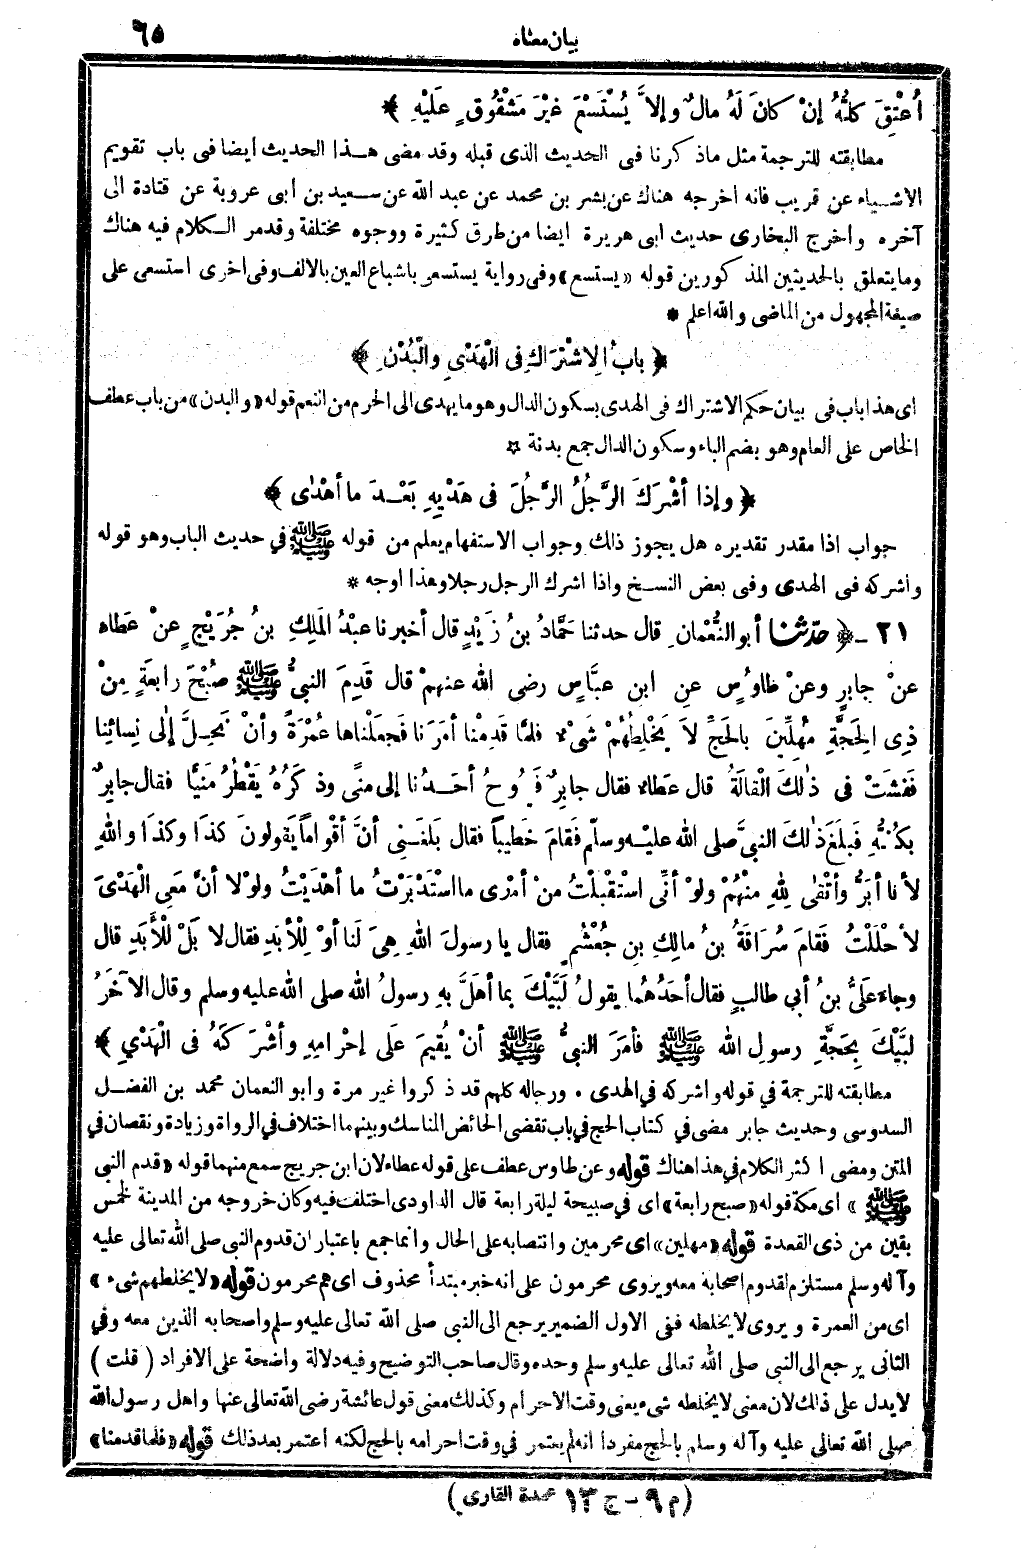 بيان معناه ٦٥
أُعْتِقَ كلُّهُ إنْ كانَ لَهُ مالٌ وإلاَّ يُسْتَسْعَ غيْرَ مَشْقُوقٍ عَليْهِ ﴾
مطابقته للترجمة مثل ماذكرنا فى الحديث الذى قبله وقد مضى هـذا الحديث أيضا فى باب تقويم
الاشـياء عن قريب فانه اخرجه هناك عن بشر بن محمد عن عبد الله عن سـعيد بن أبى عروبة عن قتادة الى
آخره واخرج البخارى حديث ابى هريرة ايضا من طرق كثيرة ووجوه مختلفة وقدمر الـكلام فيه هناك
ومايتعلق بالحديثين المذكورين قوله «يستسع» وفى رواية يستسعى باشباع العين بالالف وفى اخرى استسعى على
صيغة المجهول من الماضى والله اعلم *
﴿ بابُ الِاشْتِرَاكِ فى الْهَدْىِ والْبُدْنِ ﴾
اى هذا باب فى بيان حكم الاشتراك فى الهدى بسكون الدال وهو ما يهدى الى الحرم من النعم قوله «والبدن» من باب عطف
الخاص على العام وهو بضم الباء وسكون الدال جمع بدنة *
﴿ وإذا أشْرَكَ الرَّجُلُ الرَّجُلَ فى هَدْيِهِ بَعْـدَ ما أهْدٰى ﴾
جواب اذا مقدر تقديره هل يجوز ذلك وجواب الاستفهام يعلم من قوله ﷺ في حديث الباب وهو قوله
واشركه فى الهدى وفى بعض النسخ واذا اشرك الرجل رجلا وهذا اوجه *
٢١ - ﴿ حدّثنا أبو النُّعْمانِ قال حدثنا حَمَّادُ بنُ زَيْدٍ قال أخبرنا عبْدُ المَلِكِ بنُ جُرَيْجٍ عنْ عَطاءٍ
عنْ جابرٍ وعنْ طاوُسٍ عنِ ابن عبَّاسٍ رضى الله عنهمْ قال قَدِمَ النبيُّ ﷺ صُبْحَ رابعَةٍ مِنْ
ذِى الحَجَّةِ مُهِلِّينَ بالحَجِّ لاَ يَخْلِطُهُمْ شَىْءٌ فلمَّا قَدِمْنا أمَرَنا فَجعلْناها عُمْرَةً وأنْ نَحِـلَّ إلٰى نِسائِنا
فَفشَتْ فى ذٰلكَ الْقالَةُ قال عَطاءٌ فقال جابرٌ فَيَرُوحُ أحَـدُنا إلى مِنًى وذَكَرُهُ يَقْطُرُ مَنيًّا فقال جابرٌ
بكُفِّهِ فَبلَغَ ذٰلكَ النبيَّ صلى الله عليـه وسلّم فَقامَ خَطيباً فقال بَلغَـنِى أنَّ أقْواماً يَقولونَ كذَا وكذَا واللهِ
لأَنا أبَرُّ وأتْقٰى للهِ مِنْهُمْ ولوْ أنِّى اسْتَقْبلْتُ مِنْ أمْرِى ما اسْتَدْبَرْتُ ما أهْدَيْتُ ولوْلا أنَّ مَعِى الْهَدْىَ
لأحْلَلْتُ فَقامَ سُرَاقَةُ بنُ مالِكِ بنِ جُعْشُمٍ فقال يا رسولَ اللهِ هِىَ لَنا أوْ لِلْأبَدِ فقال لا بَلْ لِلْأَبَدِ قال
وجاءَ علَىُّ بنُ أبي طالبٍ فقال أحَدُهُما يقولُ لَبَّيْكَ بما أهَلَّ بهِ رسولُ الله صلى الله عليه وسلم وقال الآخَرُ
لبَّيْكَ بِحَجَّةِ رسولِ الله ﷺ فأمَرَ النبيُّ ﷺ أنْ يُقيمَ عَلَى إحْرامِهِ وأشْرَكَهُ فى الْهَدْيِ ﴾
مطابقته للترجمة في قوله واشركه في الهدى . ورجاله كلهم قد ذكروا غير مرة وابو النعمان محمد بن الفضـل
السدوسى وحديث جابر مضى في كتاب الحج في باب تقضى الحائض المناسك وبينهما اختلاف في الرواة وزيادة ونقصان في
المتن ومضى اكثر الكلام في هذا هناك قوله وعن طاوس عطف على قوله عطاء لان ابن جريج سمع منهما قوله «قدم النبي
ﷺ» اى مكة قوله «صبح رابعة» اى في صبيحة ليلة رابعة قال الداودى اختلف فيه وكان خروجه من المدينة لخمس
بقين من ذى القعدة قوله «مهلين» اى محرمين وانتصابه على الحال وانما جمع باعتبار ان قدوم النبي صلى الله تعالى عليه
وآله وسلم مستلزم لقدوم اصحابه معه ويروى محرمون على انه خبر مبتدأ محذوف اى هم محرمون قوله «لا يخلطهم شىء»
اى من العمرة ويروى لا يخلطه ففى الاول الضمير يرجع الى النبي صلى الله تعالى عليه وسلم واصحابه الذين معه وفي
الثانى يرجع الى النبي صلى الله تعالى عليه وسلم وحده وقال صاحب التوضيح وفيه دلالة واضحة على الافراد (قلت)
لا يدل على ذلك لان معنى لا يخلطه شىء يعنى وقت الاحرام وكذلك معنى قول عائشة رضى الله تعالى عنها واهل رسول الله
صلى الله تعالى عليه وآله وسلم بالحج مفردا انه لم يعتمر في وقت احرامه بالحج لكنه اعتمر بعد ذلك قوله «فلما قدمنا»
(م ٩ - ج ١٣ عمدة القارى)